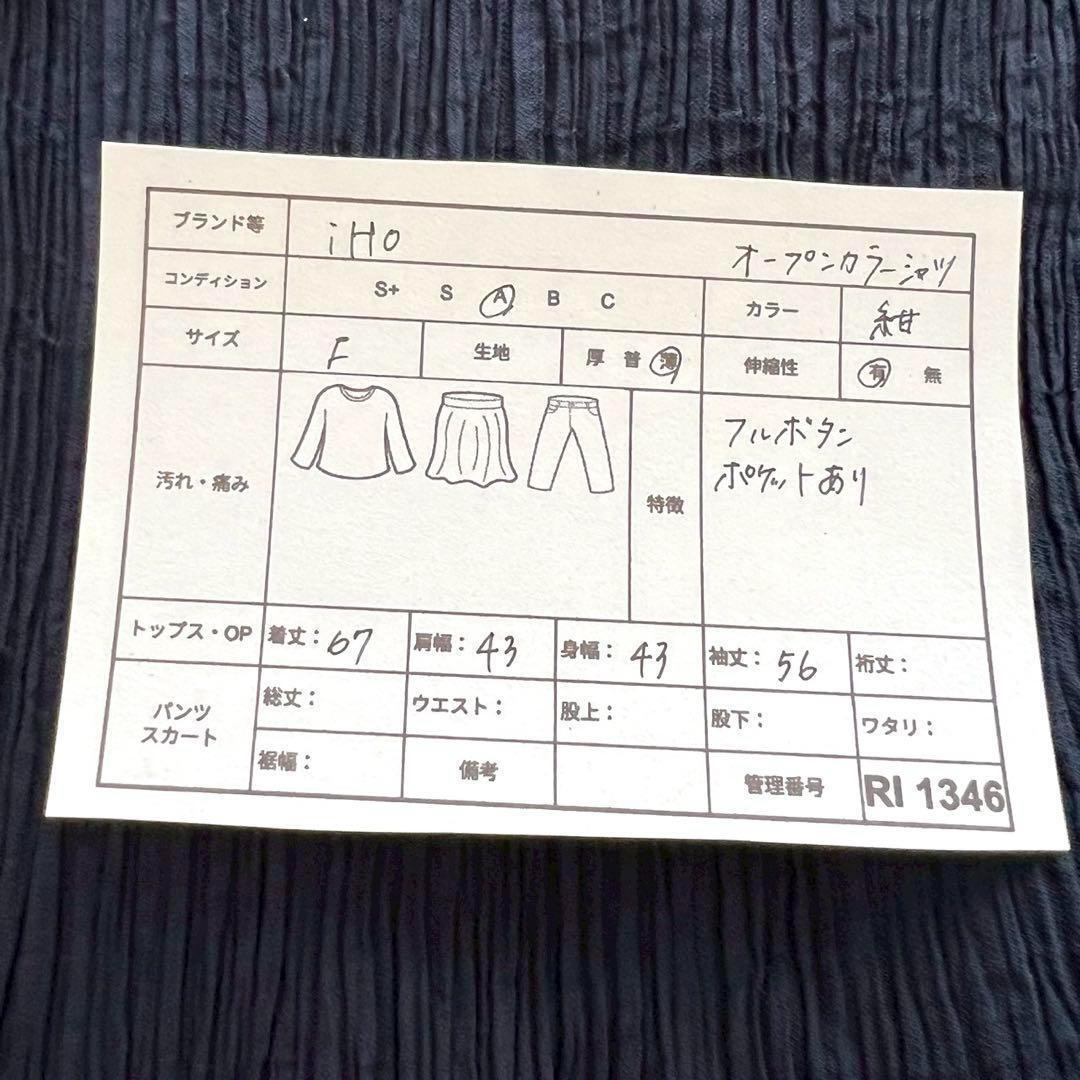 ブランド等 iHO オープンカラーシャツ
コンディション S+ S A B C カラー 紺
サイズ F 生地 厚 普 薄 伸縮性 有 無
汚れ・痛み 特徴 フルボタン
ポケットあり
トップス・OP 着丈：67 肩幅：43 身幅：43 袖丈：56 裄丈：
パンツ
スカート
総丈： ウエスト： 股上： 股下： ワタリ：
裾幅： 備考 管理番号 RI 1346